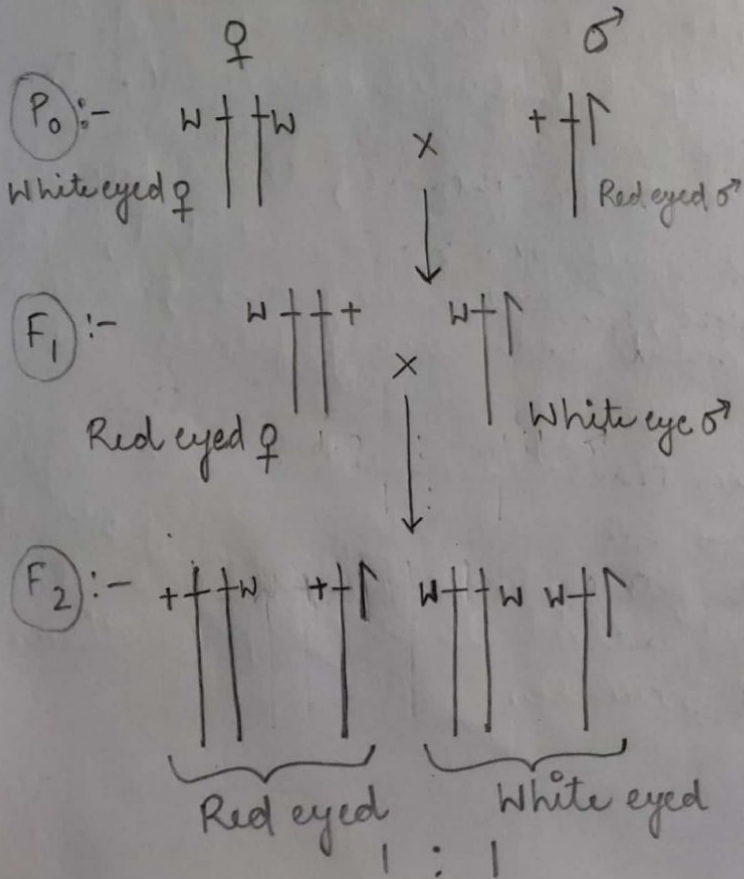 ♀ ♂
P₀ :- W W × +
White eyed ♀ Red eyed ♂
F₁ :- W + × W
Red eyed ♀ White eye ♂
F₂ :- + W + W W W
Red eyed White eyed
1 : 1